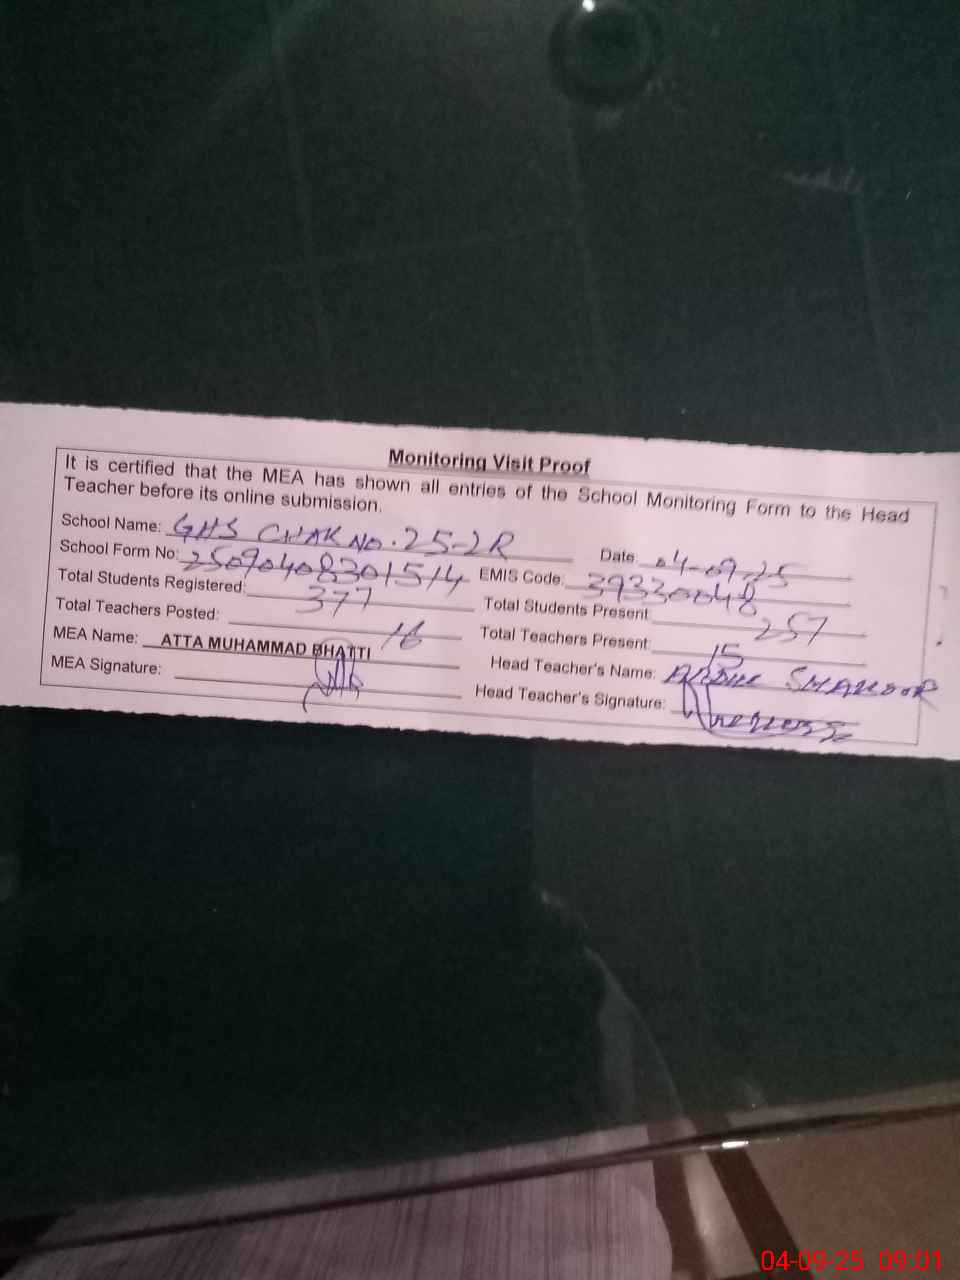 Monitoring Visit Proof
It is certified that the MEA has shown all entries of the School Monitoring Form to the Head
Teacher before its online submission.
School Name: GHS CHAK NO. 25-2R Date 04-09-25
School Form No: 25090408301514 EMIS Code: 39330048
Total Students Registered: 377 Total Students Present 257
Total Teachers Posted: 16 Total Teachers Present: 15
MEA Name: ATTA MUHAMMAD BHATTI Head Teacher's Name: ABDUL SHAKOOR
MEA Signature: Head Teacher's Signature:
04-09-25 09:01